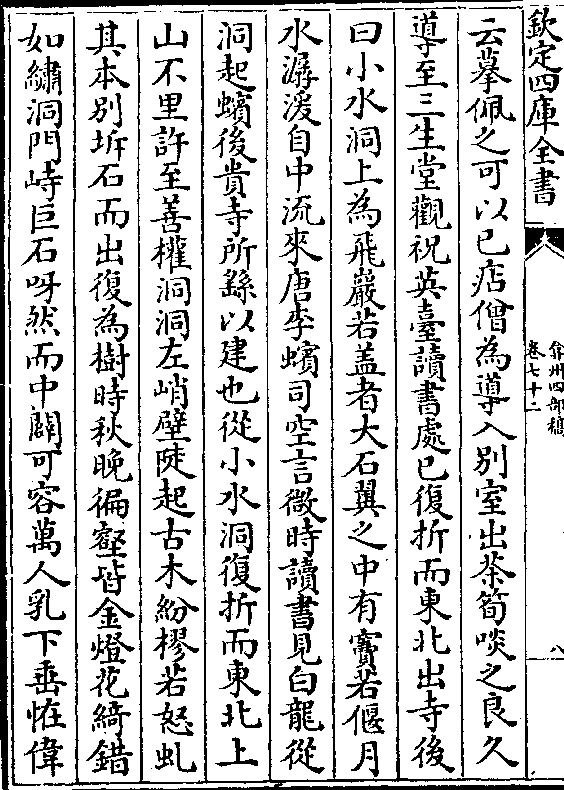 欽定四庫全書
弇州四部稿
卷七十二
八
云摹佩之可以已痁僧為導入別室出茶筍啖之良久
導至三生堂觀祝英臺讀書處已復折而東北出寺後
曰小水洞上為飛巖若盖者大石翼之中有竇若偃月
水潺湲自中流來唐李蠙司空言微時讀書見白龍從
洞起蠙後貴寺所繇以建也從小水洞復折而東北上
山不里許至善權洞洞左峭壁陡起古木紛樛若怒虬
其本別坼石而出復為樹時秋晚徧壑皆金燈花綺錯
如繡洞門峙巨石呀然而中闢可容萬人乳下垂恠偉